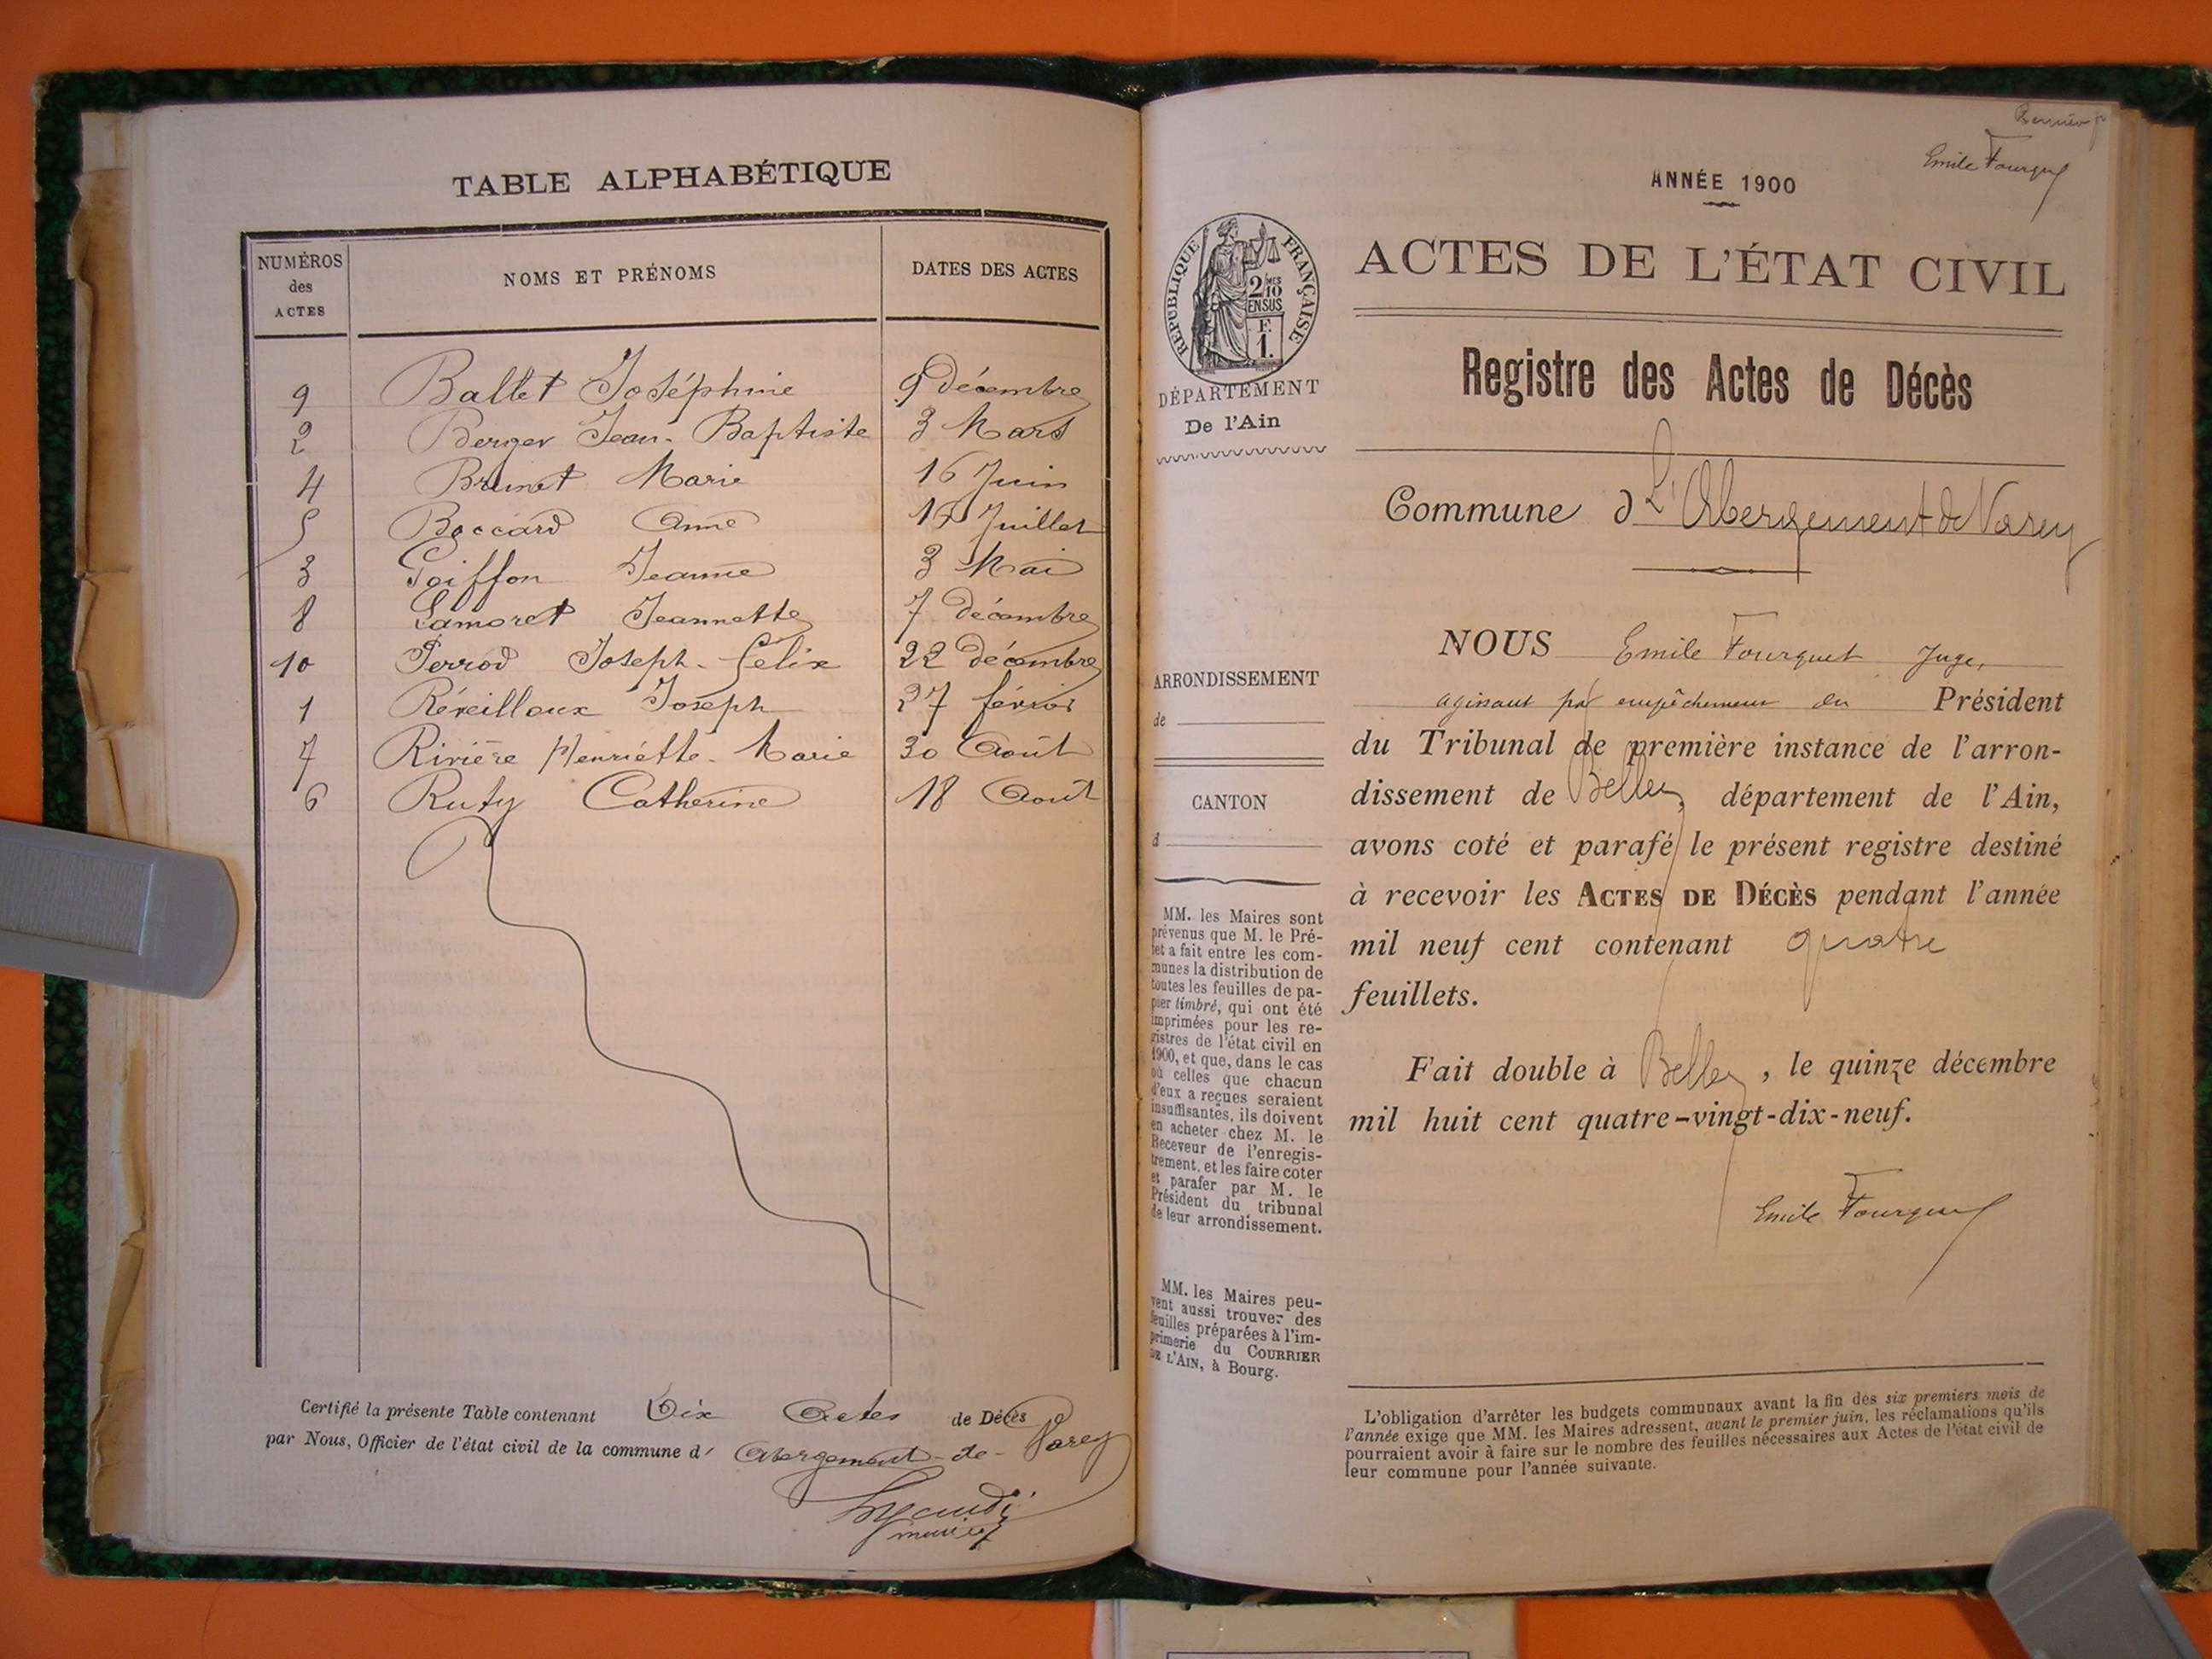 TABLE ALPHABÉTIQUE
NUMÉROS des ACTES NOMS ET PRÉNOMS DATES DES ACTES
9 Ballet Joséphine 9 Décembre
2 Berger Jean-Baptiste 3 Mars
4 Brunet Marie 16 Juin
5 Boccard Anne Juillet
3 Goiffon Jeanne 3 Mai
8 Lamoret Jeannette 7 décembre
10 Perrod Joseph-Félix 22 décembre
1 Réveilloux Joseph 27 février
7 Rivière Henriette-Marie 30 Août
6 Ruty Catherine 18 Août
Certifié la présente Table contenant Dix Actes de Décès
par Nous, Officier de l'état civil de la commune d' Abergement-de-Varey
Emile Fourquet
ANNÉE 1900
ACTES DE L'ÉTAT CIVIL
RÉPUBLIQUE FRANÇAISE
2 MES
10
EN SUS
F.
1.
DÉPARTEMENT
De l'Ain
Registre des Actes de Décès
Commune d L'Abergement de Varey
NOUS Emile Fourquet Juge,
agissant par empêchement du Président
du Tribunal de première instance de l'arron-
dissement de Belley, département de l'Ain,
avons coté et parafé le présent registre destiné
à recevoir les ACTES DE DÉCÈS pendant l'année
mil neuf cent contenant quatre
feuillets.
Fait double à Belley, le quinze décembre
mil huit cent quatre-vingt-dix-neuf.
Emile Fourquet
ARRONDISSEMENT
de
CANTON
d
MM. les Maires sont
prévenus que M. le Pré-
fet a fait entre les com-
munes la distribution de
toutes les feuilles de pa-
pier timbré, qui ont été
imprimées pour les re-
gistres de l'état civil en
1900, et que, dans le cas
où celles que chacun
d'eux a reçues seraient
insuffisantes, ils doivent
en acheter chez M. le
Receveur de l'enregis-
trement, et les faire coter
et parafer par M. le
Président du tribunal
de leur arrondissement.
MM. les Maires peu-
vent aussi trouver des
feuilles préparées à l'im-
primerie du COURRIER
DE L'AIN, à Bourg.
L'obligation d'arrêter les budgets communaux avant la fin des six premiers mois de
l'année exige que MM. les Maires adressent, avant le premier juin, les réclamations qu'ils
pourraient avoir à faire sur le nombre des feuilles nécessaires aux Actes de l'état civil de
leur commune pour l'année suivante.